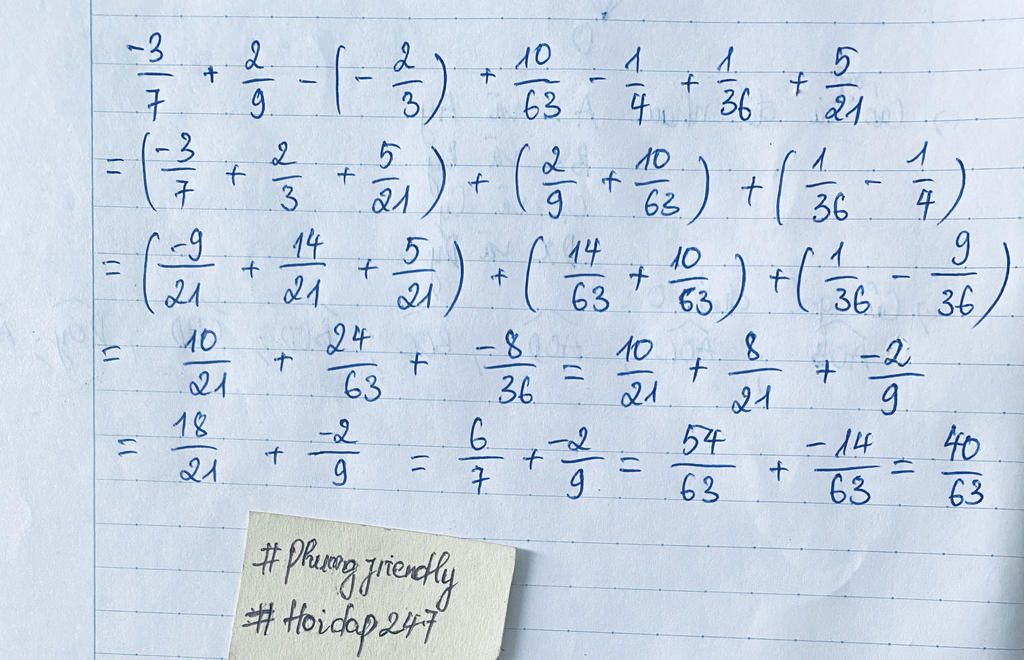 -3/7 + 2/9 - (-2/3) + 10/63 - 1/4 + 1/36 + 5/21
= (-3/7 + 2/3 + 5/21) + (2/9 + 10/63) + (1/36 - 1/4)
= (-9/21 + 14/21 + 5/21) + (14/63 + 10/63) + (1/36 - 9/36)
= 10/21 + 24/63 + -8/36 = 10/21 + 8/21 + -2/9
= 18/21 + -2/9 = 6/7 + -2/9 = 54/63 + -14/63 = 40/63
#Phuongfriendly
#Hoidap247